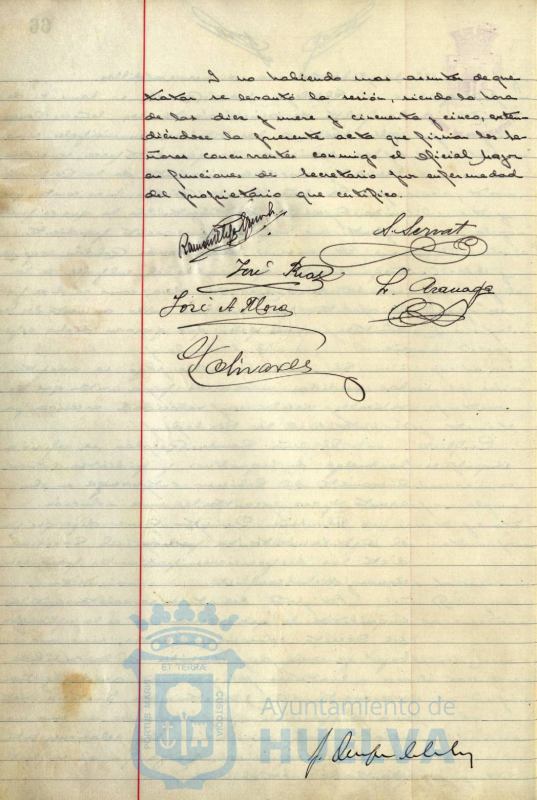 Y no habiendo mas asuntos de que
tratar se levantó la sesión, siendo la hora
de las diez y nueve y cincuenta y cinco, exten-
diéndose la presente acta que firman los se-
ñores concurrentes conmigo el Oficial mayor
en funciones de Secretario por enfermedad
del propietario que certifico.
S. Servat
José
José A Mora
Olivares
ET TERRÆ
PORTUS MARIS
CUSTODIA
Ayuntamiento de
HUELVA